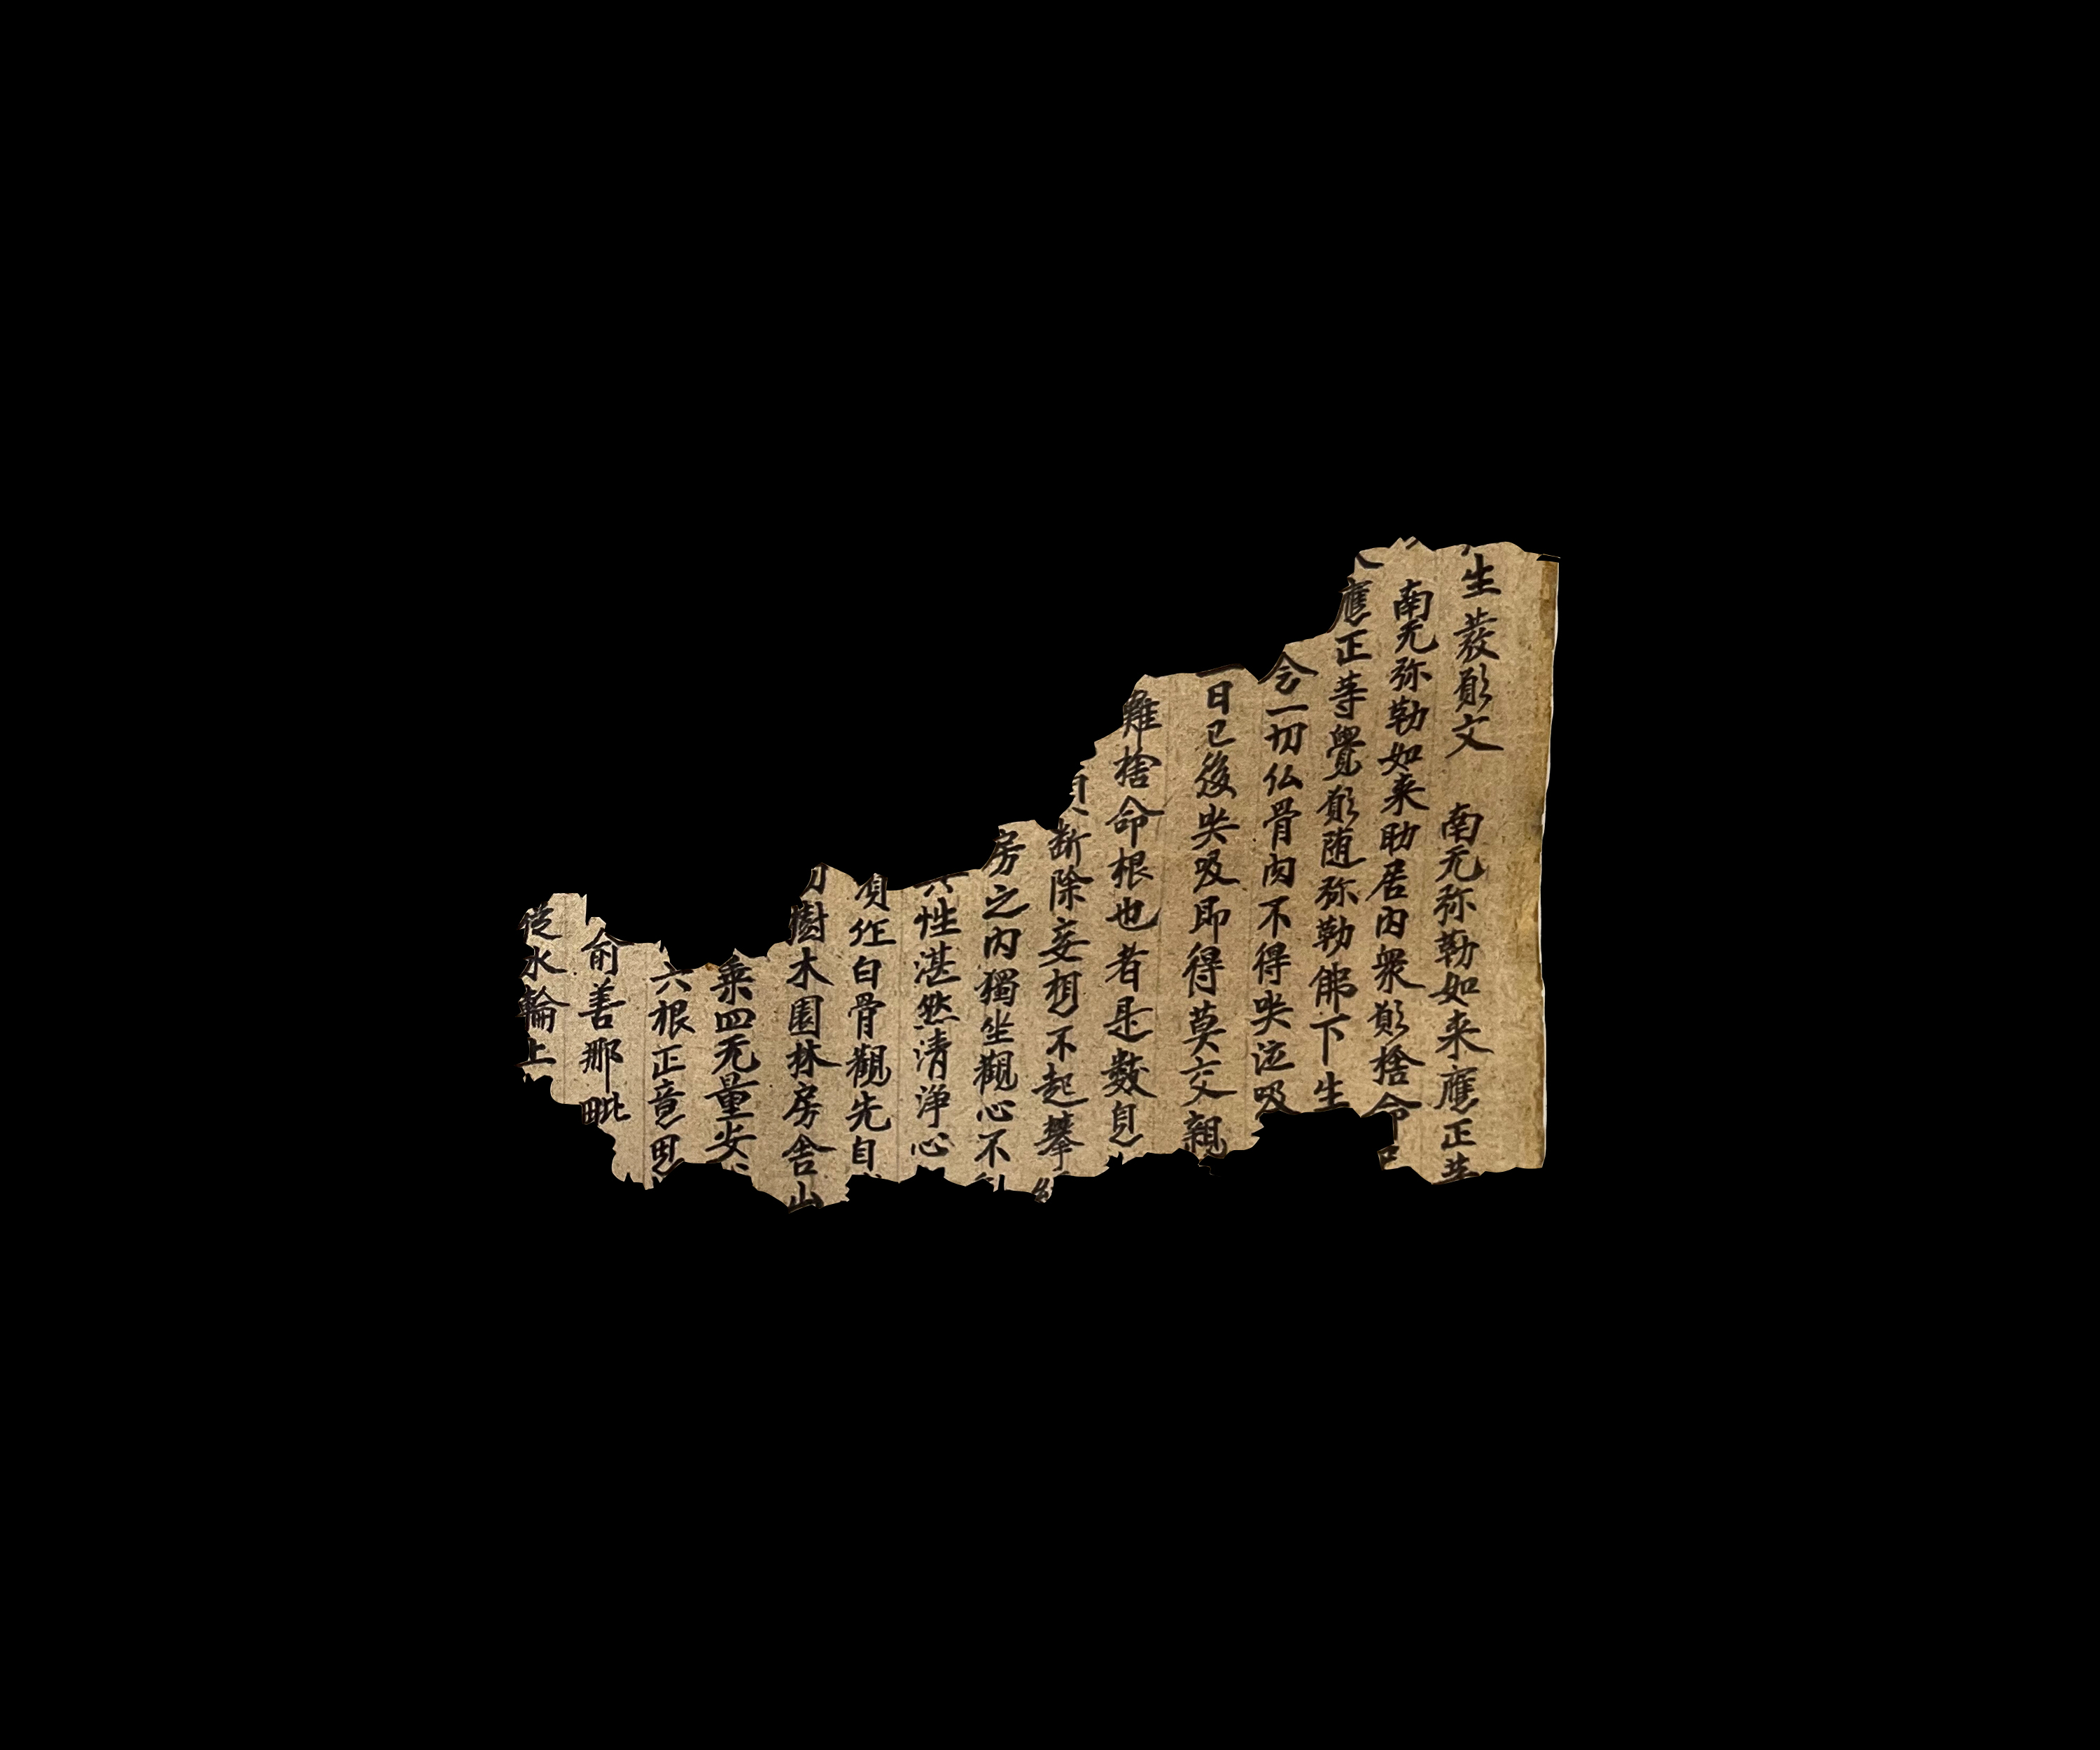 生發願文 南无弥勒如来應正
南无弥勒如来助居内衆願捨命
應正等覺願随弥勒佛下生
令一切仏骨肉不得哭泣吸
日已後哭吸即得莫交親
難捨命根也者是數息
断除妄想不起攀
房之内獨坐觀心不
性湛然清浄心
須作白骨觀先自
樹木園林房舎山
乗四无量安
六根正意思
俞善那毗
從水輪上